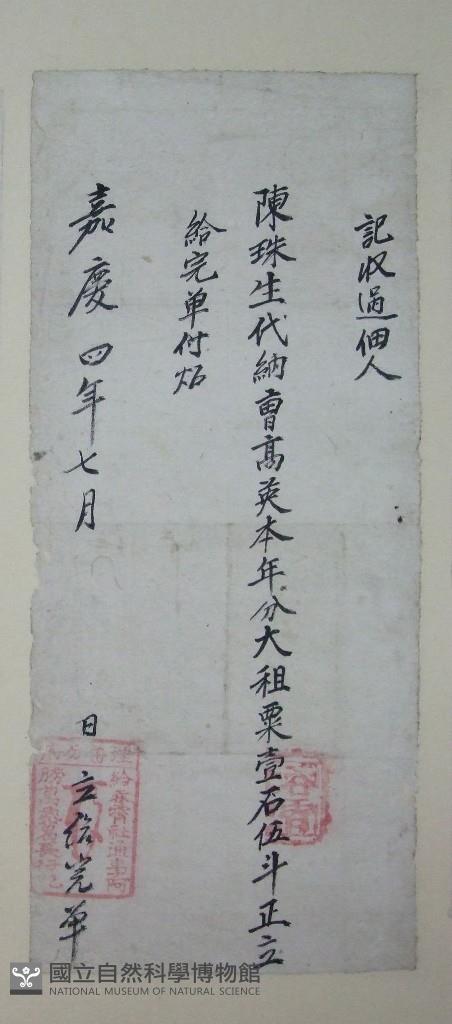 記收過佃人
陳珠生代納曾高英本年分大租粟壹石伍斗正立
給完单付炤
嘉慶四年七月 日 立給完單
國立自然科學博物館
NATIONAL MUSEUM OF NATURAL SCIENCE